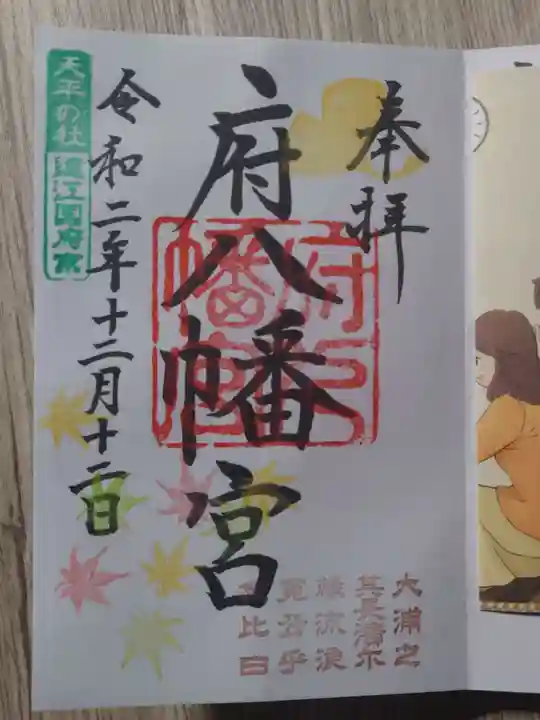 奉拝
府八幡宮
令和二年十二月十二日
天平の社
遠江国府宮
府八幡宮
大浦之
其長濱尓
縁流浪
寛公乎
念比日